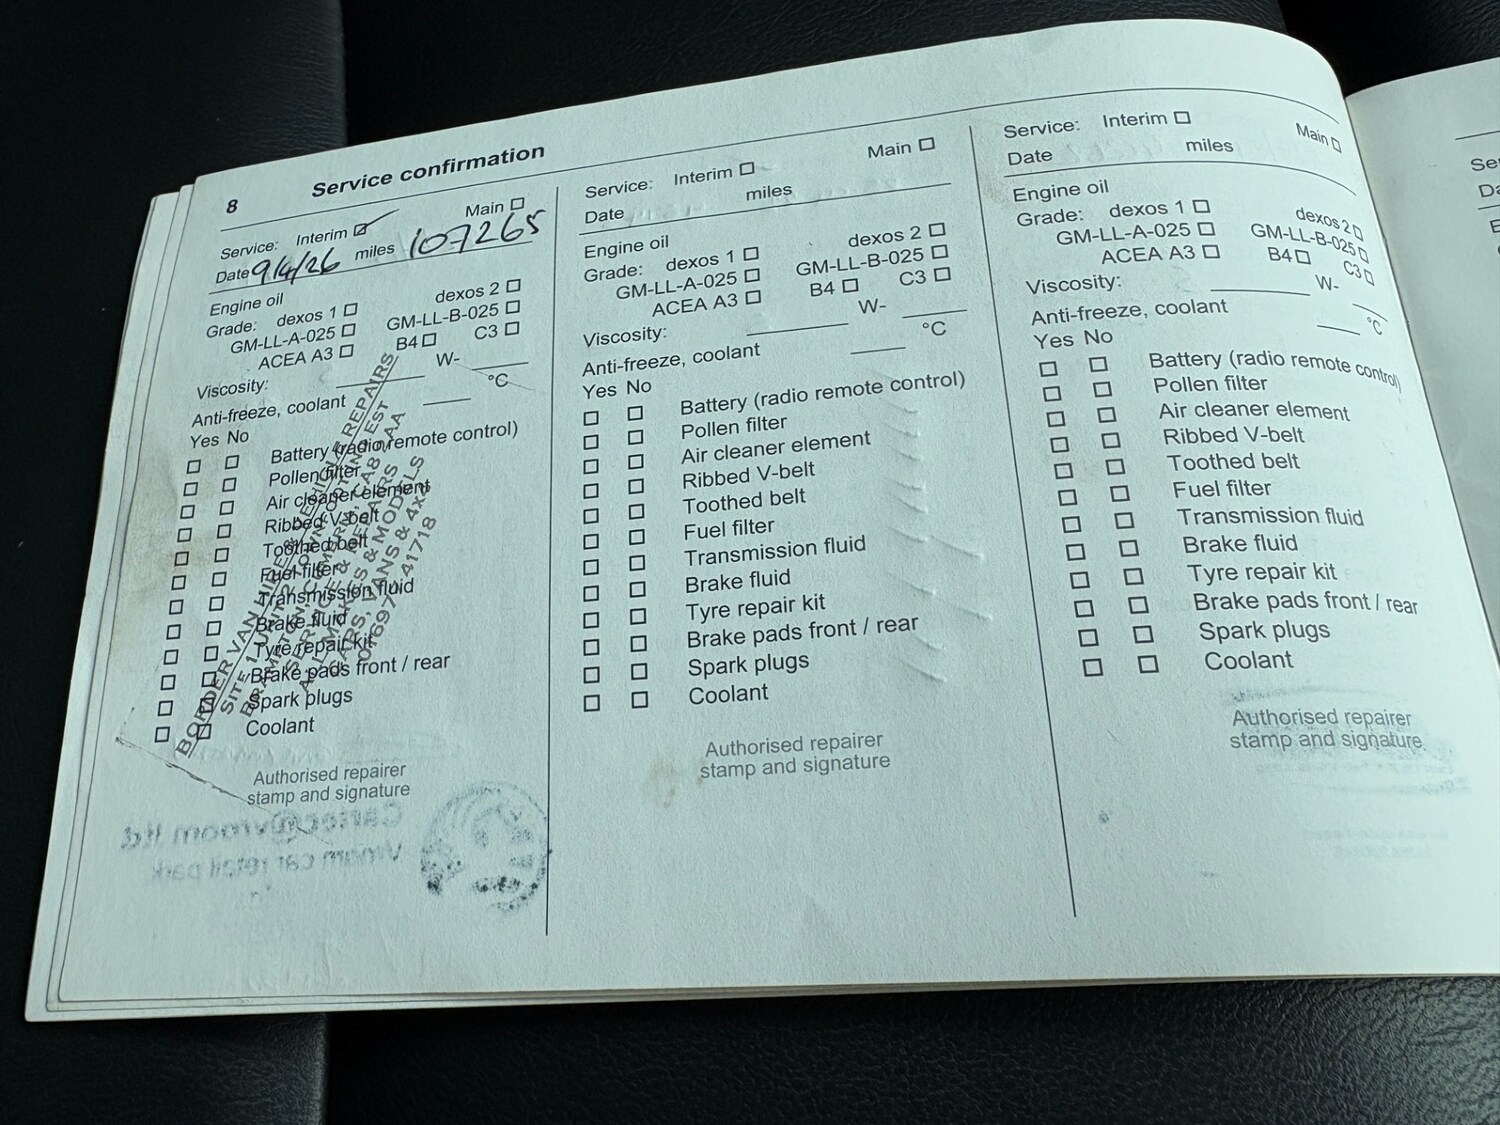 8 Service confirmation
Service: Interim Main
Date 9/4/26 miles 107265
Engine oil
Grade: dexos 1 dexos 2
GM-LL-A-025 GM-LL-B-025
ACEA A3 B4 C3
Viscosity: W-
Anti-freeze, coolant °C
Yes No
Battery (radio remote control)
Pollen filter
Air cleaner element
Ribbed V-belt
Toothed belt
Fuel filter
Transmission fluid
Brake fluid
Tyre repair kit
Brake pads front / rear
Spark plugs
Coolant
BORDER VAN HIRE & VEHICLE REPAIRS
SITE 1
SERVICE & REPAIRS
ALL MAKES & MODELS
CARS, VANS & 4x4
016977 41718
Authorised repairer
stamp and signature
Cartec@vroom ltd
Vroom car retail park
Service: Interim Main
Date miles
Engine oil
Grade: dexos 1 dexos 2
GM-LL-A-025 GM-LL-B-025
ACEA A3 B4 C3
Viscosity: W-
Anti-freeze, coolant °C
Yes No
Battery (radio remote control)
Pollen filter
Air cleaner element
Ribbed V-belt
Toothed belt
Fuel filter
Transmission fluid
Brake fluid
Tyre repair kit
Brake pads front / rear
Spark plugs
Coolant
Authorised repairer
stamp and signature
Service: Interim Main
Date miles
Engine oil
Grade: dexos 1 dexos 2
GM-LL-A-025 GM-LL-B-025
ACEA A3 B4 C3
Viscosity: W-
Anti-freeze, coolant °C
Yes No
Battery (radio remote control)
Pollen filter
Air cleaner element
Ribbed V-belt
Toothed belt
Fuel filter
Transmission fluid
Brake fluid
Tyre repair kit
Brake pads front / rear
Spark plugs
Coolant
Authorised repairer
stamp and signature